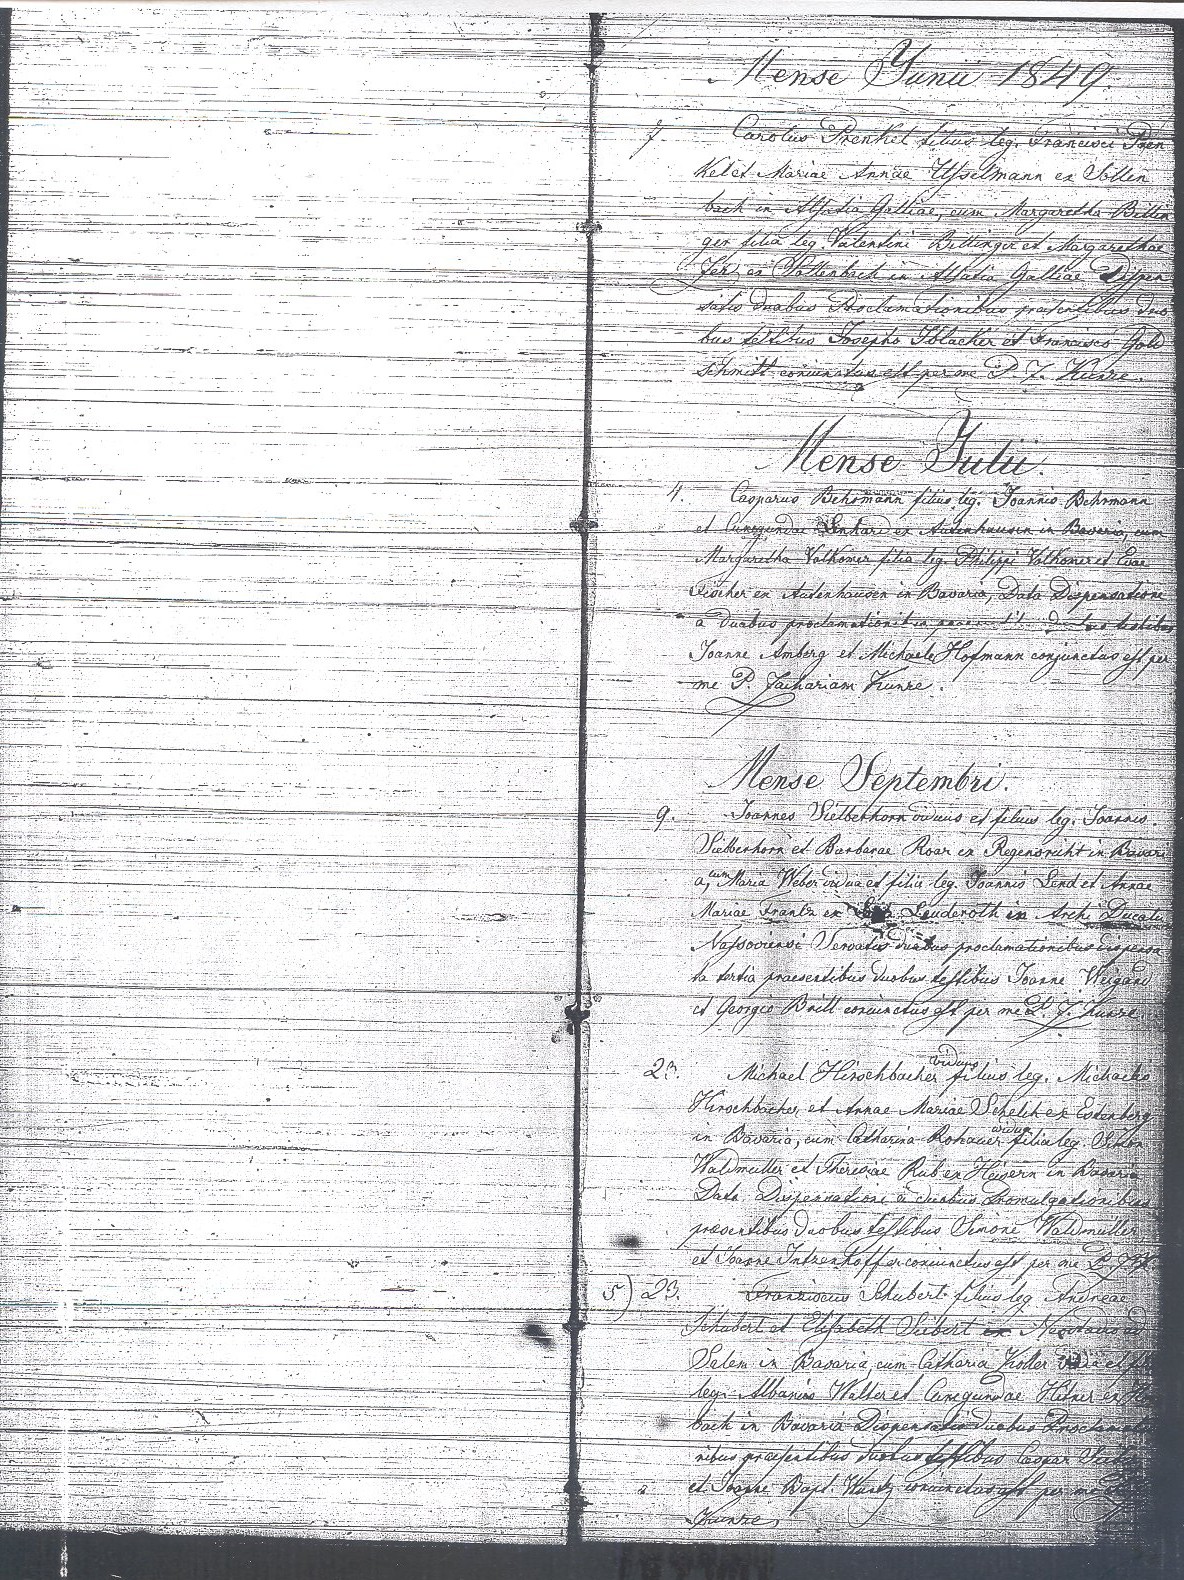 Mense Junii 1849.
7 Carolus Prenkel filius leg. Francisci Pren
kel et Mariae Annae Usselmann ex
bach in Alsatia Galliae, cum Margaretha Billin
ger filia leg. Valentini Billinger et Margarethae
ex in Alsatia Galliae Dispen
satis duabus Proclamationibus praesentibus duo
bus testibus Josepho et Francisco Gold
schmitt conjunctus est per me P. Z. Kunze.
Mense Julii.
4. Casparus Behrmann filius leg. Joannis Behrmann
et Cunegundae ex Autenhausen in Bavaria, cum
Margaretha Volkomer filia leg. Philippi Volkomer et Evae
Fischer ex Autenhausen in Bavaria, Data Dispensatione
a duabus testibus
Joanne Amberg et Michaele Hofmann conjunctus est per
me P. Zachariam Kunze.
Mense Septembri.
9. Joannes Sielberhorn viduus et filius leg. Joannis
Sielberhorn et Barbarae Roar ex in Bavari
a, cum Maria Weber vidua et filia leg. Joannis Lend et Annae
Mariae Frantz ex Leuderoth in Archi Ducatu
Nassoviensi Servatis duabus proclamationibus dispensa
ta tertia praesentibus duobus testibus Joanne Weigand
et Georgio Brill conjunctus est per me P. Z. Kunze
23 Michael Hirschbacher viduus filius leg. Michaelis
Hirschbacher, et Annae Mariae Schelch ex
in Bavaria, cum Catharina Rohauer vidua filia leg. Simon
Waldmuller et Theresiae Rub ex in Bavaria
Data Dispensatione a duabus Promulgationibus
praesentibus duobus testibus Simone Waldmüller
et Joanne conjunctus est per me P. Z. K.
5) 23. Franziscus Schubert filius leg Andreae
Schubert et Elisabeth Siebert ex
Salem in Bavaria, cum Catharia Koller vidua et
leg. Albanis Walter et Cunegundae ex
bach in Bavaria Dispensatis duabus
nibus praesentibus duobus testibus Caspar
et Joanne Bapt. conjunctus est per me
Kunze